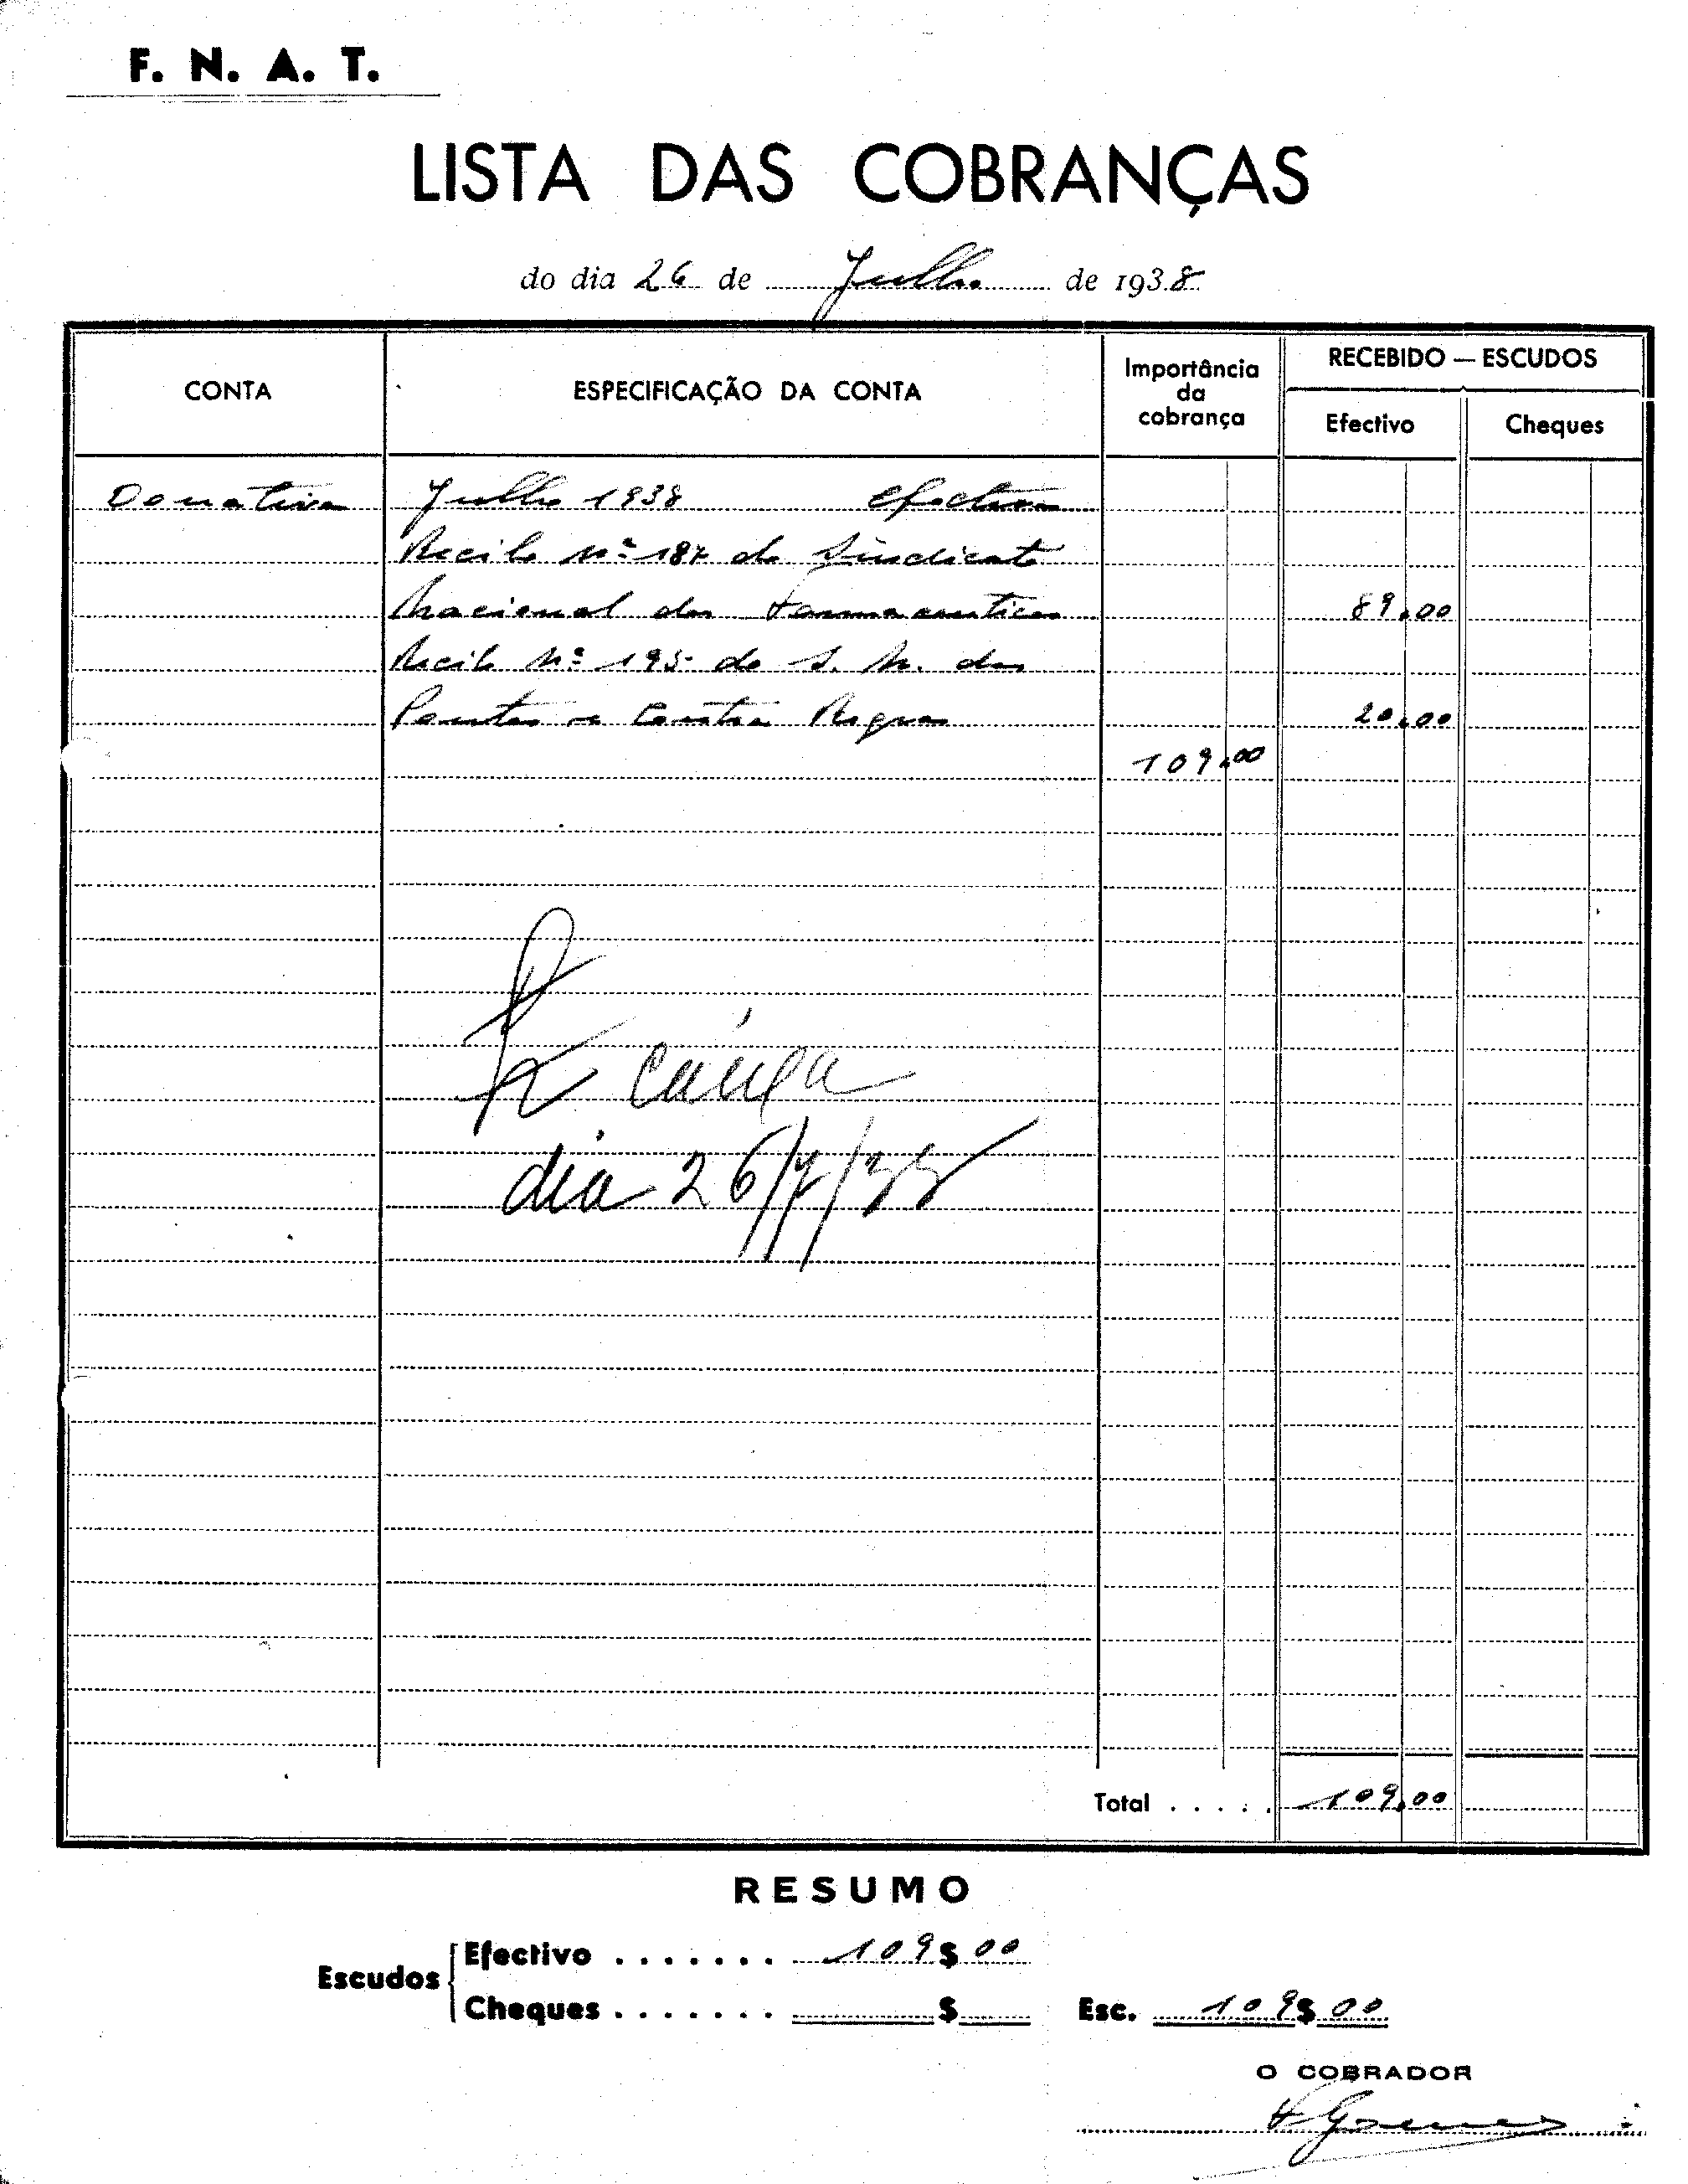 F. N. A. T.
LISTA DAS COBRANÇAS
do dia 26 de Julho de 1938
CONTA
ESPECIFICAÇÃO DA CONTA
Importância
da
cobrança
RECEBIDO — ESCUDOS
Efectivo
Cheques
Donativos Julho 1938 efectivos
Recibo nº 187 do Sindicato
Nacional dos Farmaceuticos 89.00
Recibo Nº 195 do S. N. dos
Pontos e Contra Regras 20.00
109.00
caixa
dia 26/7/38
Total . . . . . 109.00
RESUMO
Escudos
Efectivo . . . . . . . 109$00
Cheques . . . . . . . $
Esc. 109$00
O COBRADOR